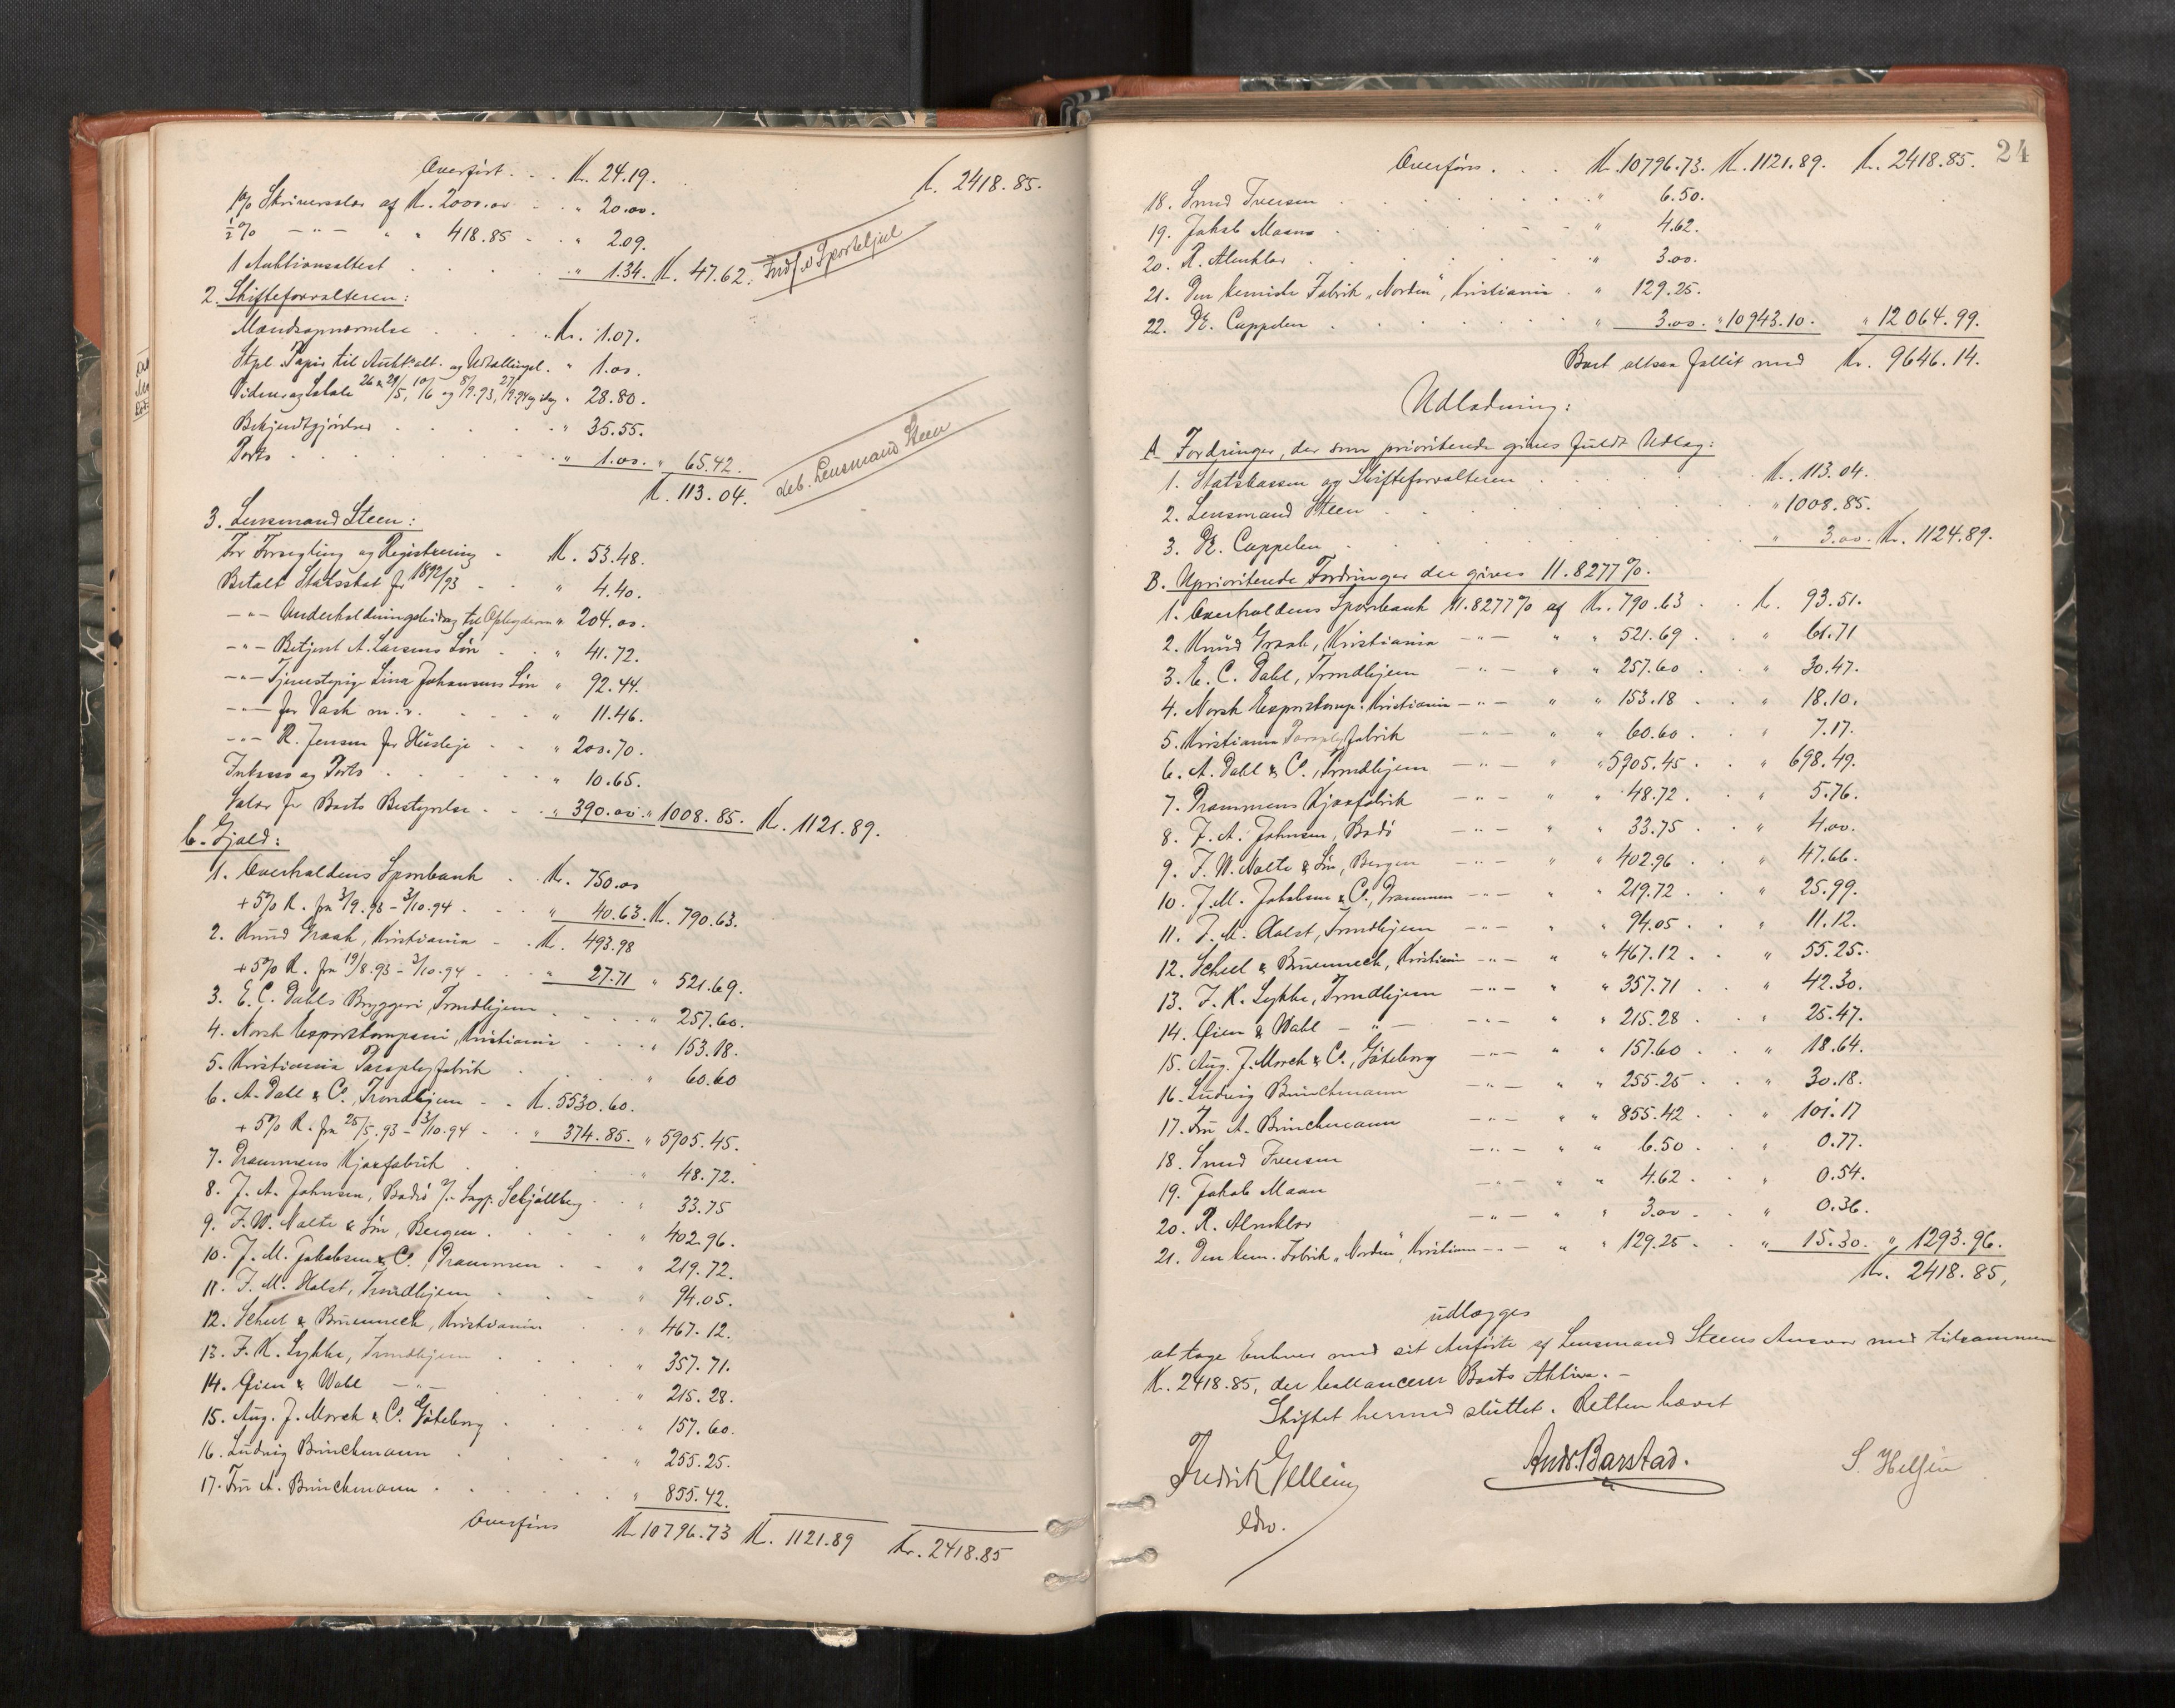 Overført . . . Kr. 24.19. K. 2418.85.
1% Skriversalær af K. 2000.00 - - " 20.00.
½% - " - " " 418.85 - . " 2.09.
1 Auktionsattest . . . . . " 1.34. K. 47.62. Indf. i Sporteljul
2. Skifteforvalteren:
Mændsopnævnelse . . . . Kr. 1.07.
Stpl. Papir til Auktalt. og Udtællingsl. " 1.00.
Vidner og Lokale 26 & 29/5, 10/6 og 8/9.93, 27/9.94 og idag . 28.80.
Bekjendtgjørelser . . . . . " 35.55.
Porto . . . . . . . " 1.00. " 65.42.
K. 113.04. deb. Lensmand Steen
3. Lensmand Steen:
For Forsegling og Registrering - K. 53.48.
Betalt Statsskat for 1892/93 - - " 4.40.
- " - Underholdningsbidrag til Opbyderen " 204.00.
- " - Betjent A. Larsens Løn . . " 41.72.
- " - Tjenestepige Lina Johansens Løn " 92.44.
- " - for Vask m.v. . . . " 11.46.
- " - R. Jensen for Husleje . . " 200.70.
Inkasso og Porto . . . . . " 10.65.
Salær for Boets Bestyrelse . . . " 390.00 " 1008.85. K. 1121.89.
C. Gjæld:
1. Overhaldens Sparebank . . K. 750.00
+ 5% R. fra 3/9.93 - 3/10.94 . . " 40.63. K. 790.63.
2. Knud Graah, Kristiania - . K. 493.98
+ 5% R. fra 19/8.93 - 3/10.94 . . " 27.71 " 521.69.
3. E. C. Dahls Bryggeri, Trondhjem . . . . " 257.60.
4. Norsk Exportkompani, Kristiania . . . " 153.18.
5. Kristiania Paraplyfabrik . . . . " 60.60
6. A. Dahl & Co., Trondhjem - . K. 5530.60.
+ 5% R. fra 25/5.93 - 3/10.94 - . " 374.85. " 5905.45.
7. Drammens Kjoxfabrik . . . . " 48.72.
8. J. A. Johnsen, Bodø v/. Sagf. Schjøllberg . . " 33.75
9. F. W. Nolte & Søn, Bergen . . . . " 402.96.
10. J. M. Jakobsen & Co., Drammen . . " 219.72.
11. J. M. Holst, Trondhjem . . . . " 94.05.
12. Scheel & Brünnech, Kristiania . . . " 467.12.
13. J. K. Lykke, Trondhjem . . . . " 357.71.
14. Øien & Wahl - " - . . . . " 215.28.
15. Aug. J. Morck & Co. Göteborg . . . " 157.60.
16. Ludvig Brinchmann . . . . " 255.25.
17. Fru A. Brinchmann . . . . . " 855.42.
Overføres K. 10796.73 K. 1121.89 Kr. 2418.85
24
Overføres . . . K. 10796.73. K. 1121.89. K. 2418.85.
18. Smed Iversen . . . . . . " 6.50.
19. Jakob Maano . . . . . - - " 4.62.
20. R. Almklov . . . . . . " 3.00.
21. Den kemiske Fabrik "Norden", Kristiania . " 129.25.
22. Dr. Cappelen . . . . . . " 3.00. " 10943.10. " 12064.99.
Boet altsaa fallit med Kr. 9646.14.
Udlodning:
A. Fordringer, der som prioriterede gives fuldt Udlæg:
1. Statskassen og Skifteforvalteren . . . . K. 113.04.
2. Lensmand Steen . . . . . . . " 1008.85.
3. Dr. Cappelen . . . . . . . " 3.00. K. 1124.89.
B. Uprioriterede Fordringer der gives 11.8277%.
1. Overhaldens Sparebank 11.8277% af K. 790.63 . . K. 93.51.
2. Knud Graah, Kristiania - " - " " 521.69 . . " 61.71
3. E. C. Dahl, Trondhjem - " - " " 257.60 . . " 30.47.
4. Norsk Exportkomp. Kristiania - " - " " 153.18 . . " 18.10.
5. Kristiania Paraplyfabrik - " - " " 60.60 . . " 7.17.
6. A. Dahl & Co., Trondhjem - " - " " 5905.45 . . " 698.49.
7. Drammens Kjoxfabrik - " - " " 48.72. . . " 5.76.
8. J. A. Johnsen, Bodø - " - " " 33.75 . . " 4.00.
9. F. W. Nolte & Søn, Bergen - " - " " 402.96 . . " 47.66.
10. J. M. Jakobsen & Co., Drammen - " - " " 219.72. . . " 25.99.
11. J. M. Holst, Trondhjem - " - " " 94.05 . . " 11.12.
12. Scheel & Brünnech, Kristiania - " - " " 467.12 . . " 55.25.
13. J. K. Lykke, Trondhjem - " - " " 357.71 . . " 42.30.
14. Øien & Wahl - " - - " - " " 215.28 . . " 25.47.
15. Aug. J. Morck & Co., Göteborg - " - " " 157.60 . . " 18.64.
16. Ludvig Brinchmann - " - " " 255.25 . . " 30.18.
17. Fru A. Brinchmann - " - " " 855.42 . . " 101.17
18. Smed Iversen - " - " " 6.50 . . " 0.77.
19. Jakob Maan - " - " " 4.62 . . " 0.54.
20. R. Almklov - " - " " 3.00 . . " 0.36.
21. Den kem. Fabrik "Norden", Kristiania - " - " " 129.25 . . " 15.30. " 1293.96.
Kr. 2418.85,
udlægges
at tage Enhver med sit Anførte af Lensmand Steens Ansvar med tilsammen
K. 2418.85, der ballancerer Boets Aktiva. -
Skiftet hermed sluttet. Retten hævet
Fredrik Gellein Andr. Barstad.
edv.